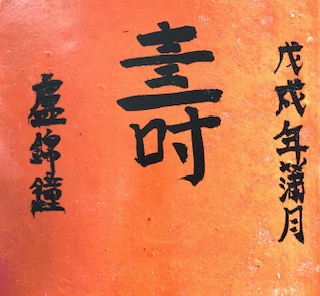 戊戌年蒲月
壽
盧錦鐘